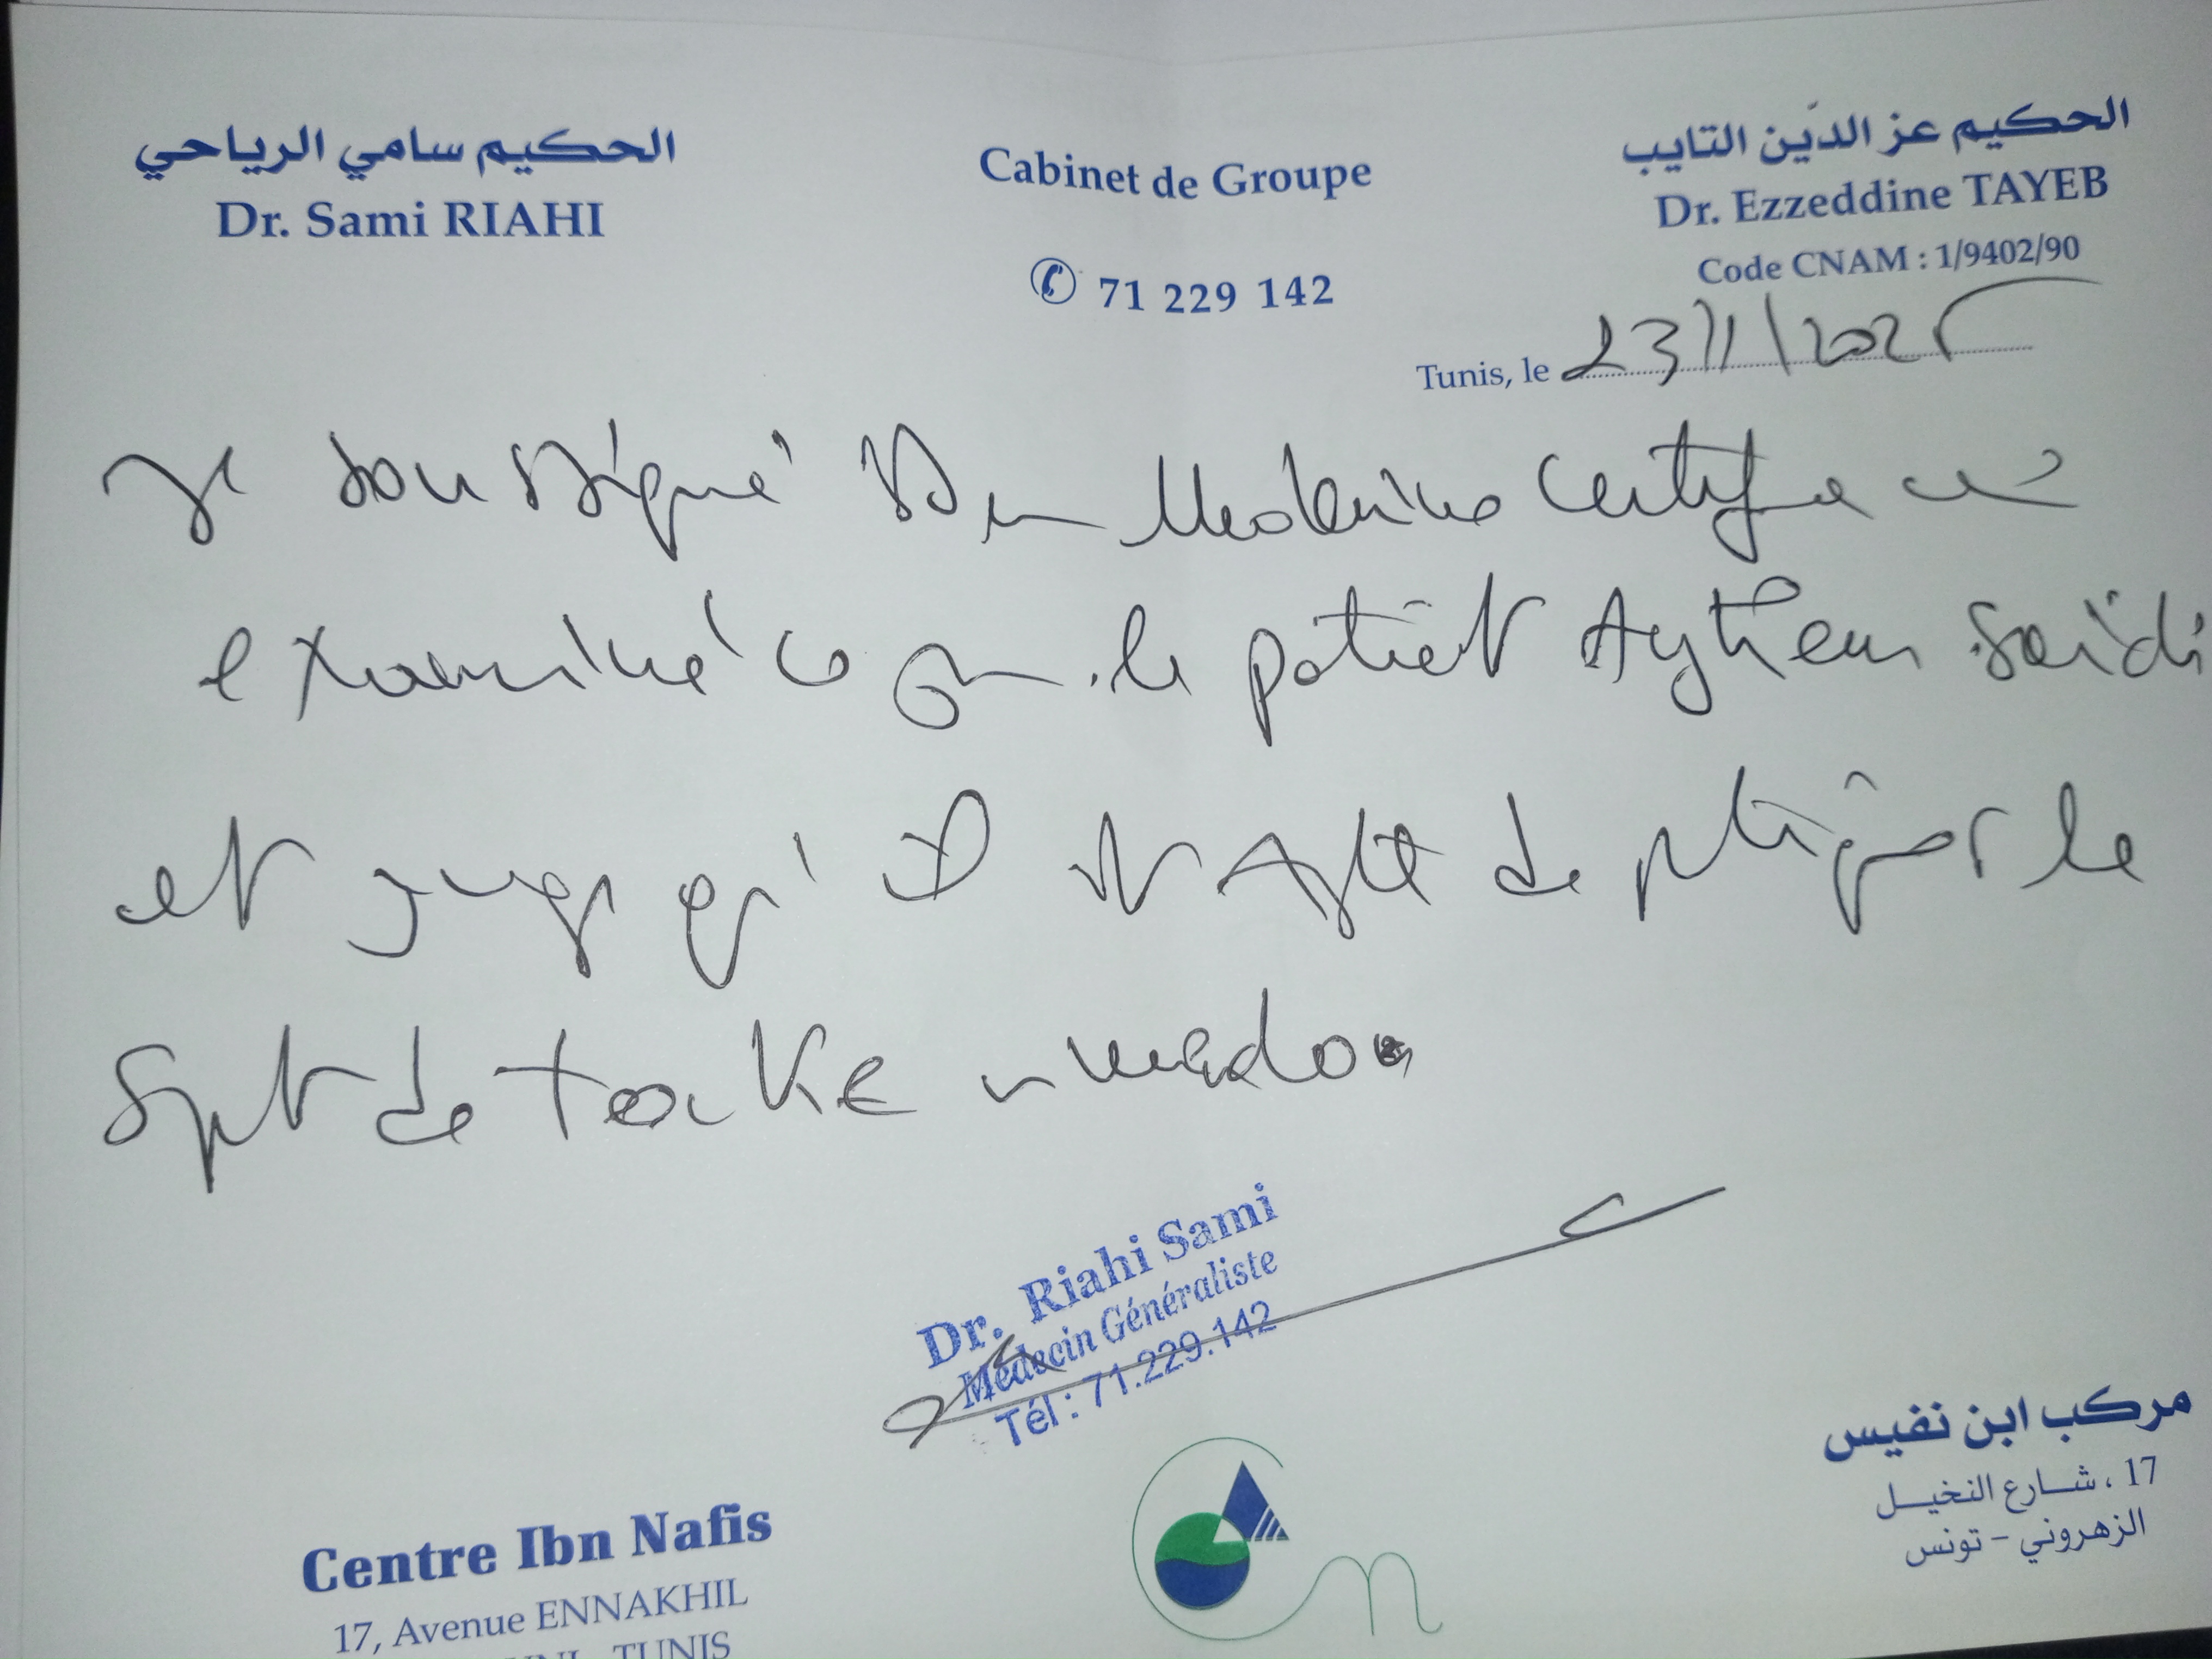 الحكيم سامي الرياحي
Dr. Sami RIAHI
Cabinet de Groupe
71 229 142
الحكيم عز الدّين التايب
Dr. Ezzeddine TAYEB
Code CNAM : 1/9402/90
Tunis, le 23/11/2025
Je soussigné Dr en Medecine certifie avoir
examiné ce jour le patient Aythem Saïdi
et juge qu'il est Apte de pratiquer le
Sport de
Dr. Riahi Sami
Médecin Généraliste
Tél : 71.229.142
Centre Ibn Nafis
17, Avenue ENNAKHIL
TUNIS
مركب ابن نفيس
17 ، شارع النخيل
الزهروني - تونس